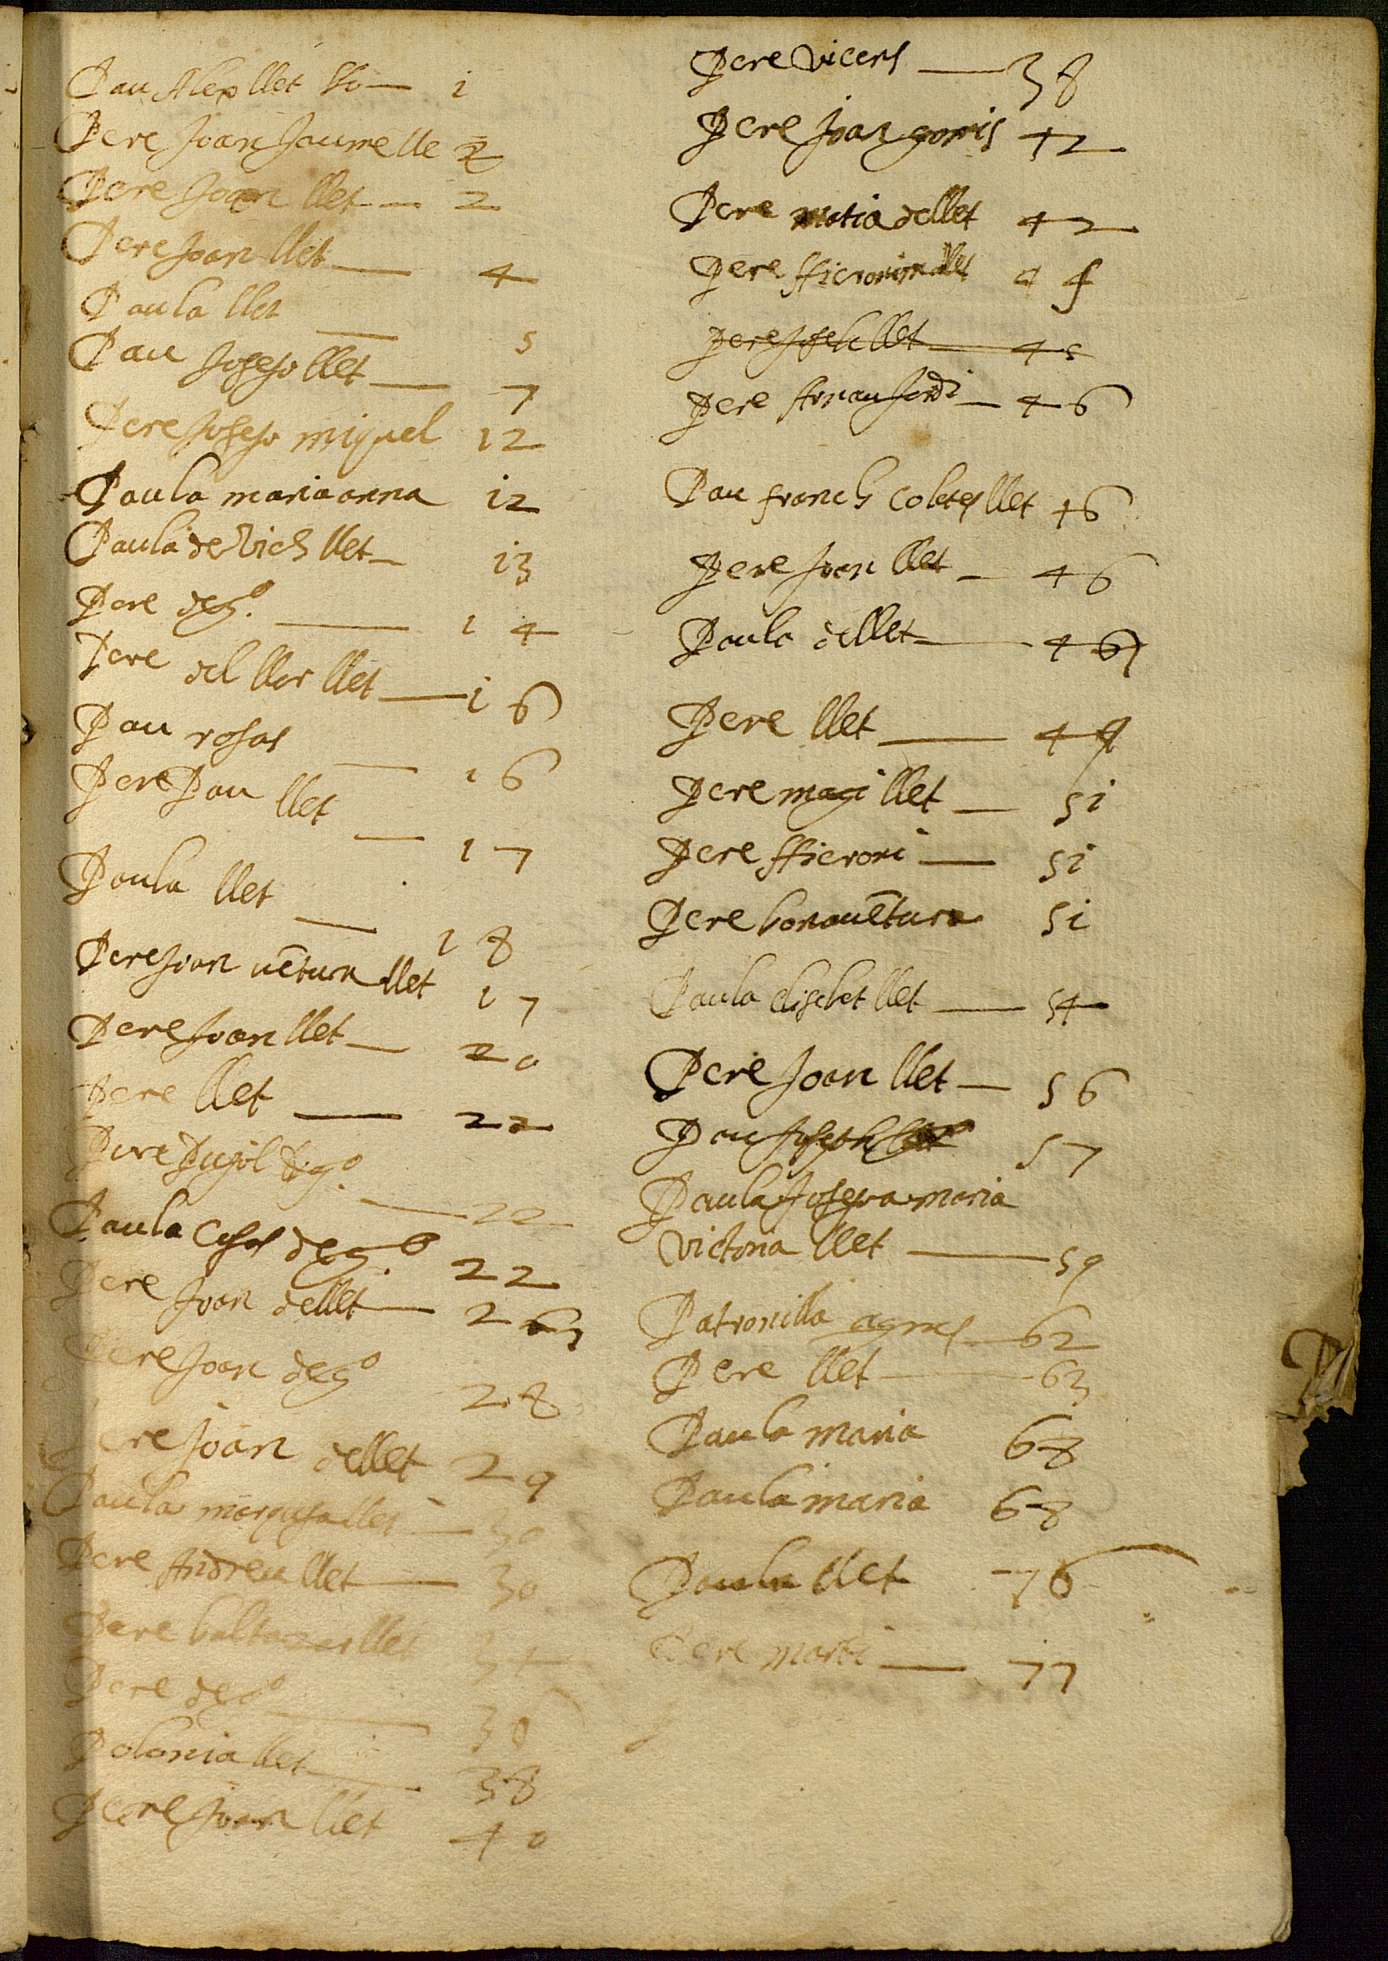 Pau Alex llet
1
Pere Joan Jaume lle 2
Pere Joan llet — 2
Pere Joan llet — 4
Paula llet — 5
Pau Joseph llet — 7
Pere Joseph miquel 12
Paula maria anna i2
Paula de Vich llet — i3
Pere deg.º — 1 4
Pere del llor llet — i 6
Pau rosas — 1 6
Pere Pau llet — 1 7
Paula llet — 1 8
Pere Joan vētura llet 1 7
Pere Joan llet — 20
Pere llet — 22
Pere Pujol deg.º — 22
Paula deg.º 22
Pere Joan dellet — 26
Pere Joan degº 28
Pere Joan dellet 29
Paula llet — 30
Pere Andreu llet — 30
Pere baltazar llet 34
Pere degº — 36
Polonia llet — 38
Pere Joan llet 40
Pere vicens — 38
Pere Joan gomis 42
Pere matia dellet 42
Pere Hieronim dllet
Pere Joseph llet — 45
Pere Arnau Jordi — 46
Pau franch llet 46
Pere Joan llet — 46
Paula dellet — 46
Pere llet — 49
Pere magi llet — 5i
Pere Hieroni — 5i
Pere bonavētura 5i
Paula elisebet llet — 54
Pere Joan llet — 56
Pau Joseph 57
Paula Josepa maria
victoria llet — 59
Patronilla agnes — 62
Pere llet — 63
Paula maria 68
Paula maria 68
Paula llet 76
Pere marti — 77
P